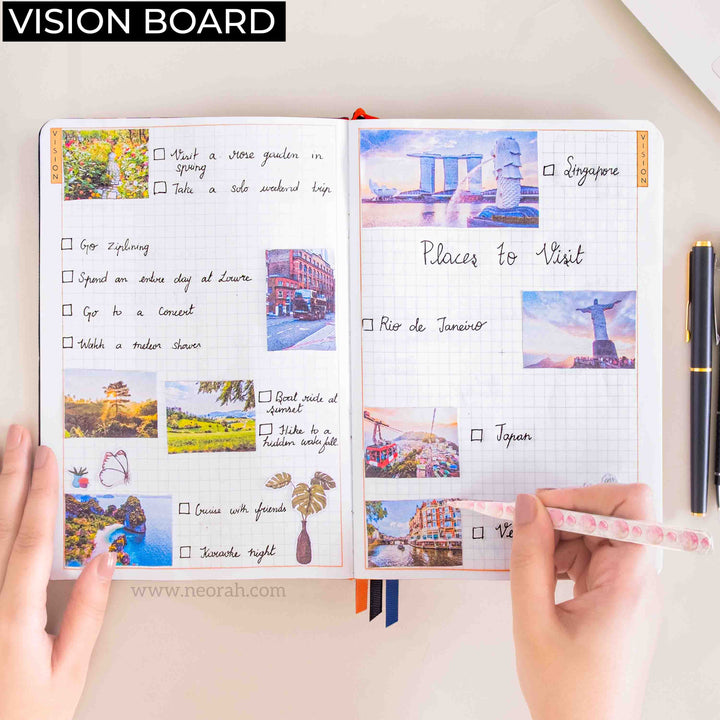 VISION BOARD
VISION
Visit a rose garden in
spring
Take a solo weekend trip
Go Ziplining
Spend an entire day at Louvre
Go to a Concert
Watch a meteor shower
Boat ride at
sunset
Hike to a
hidden waterfall
Cruise with friends
Karaoke night
VISION
Singapore
Places to Visit
Rio de Janeiro
Japan
Ve
www.neorah.com